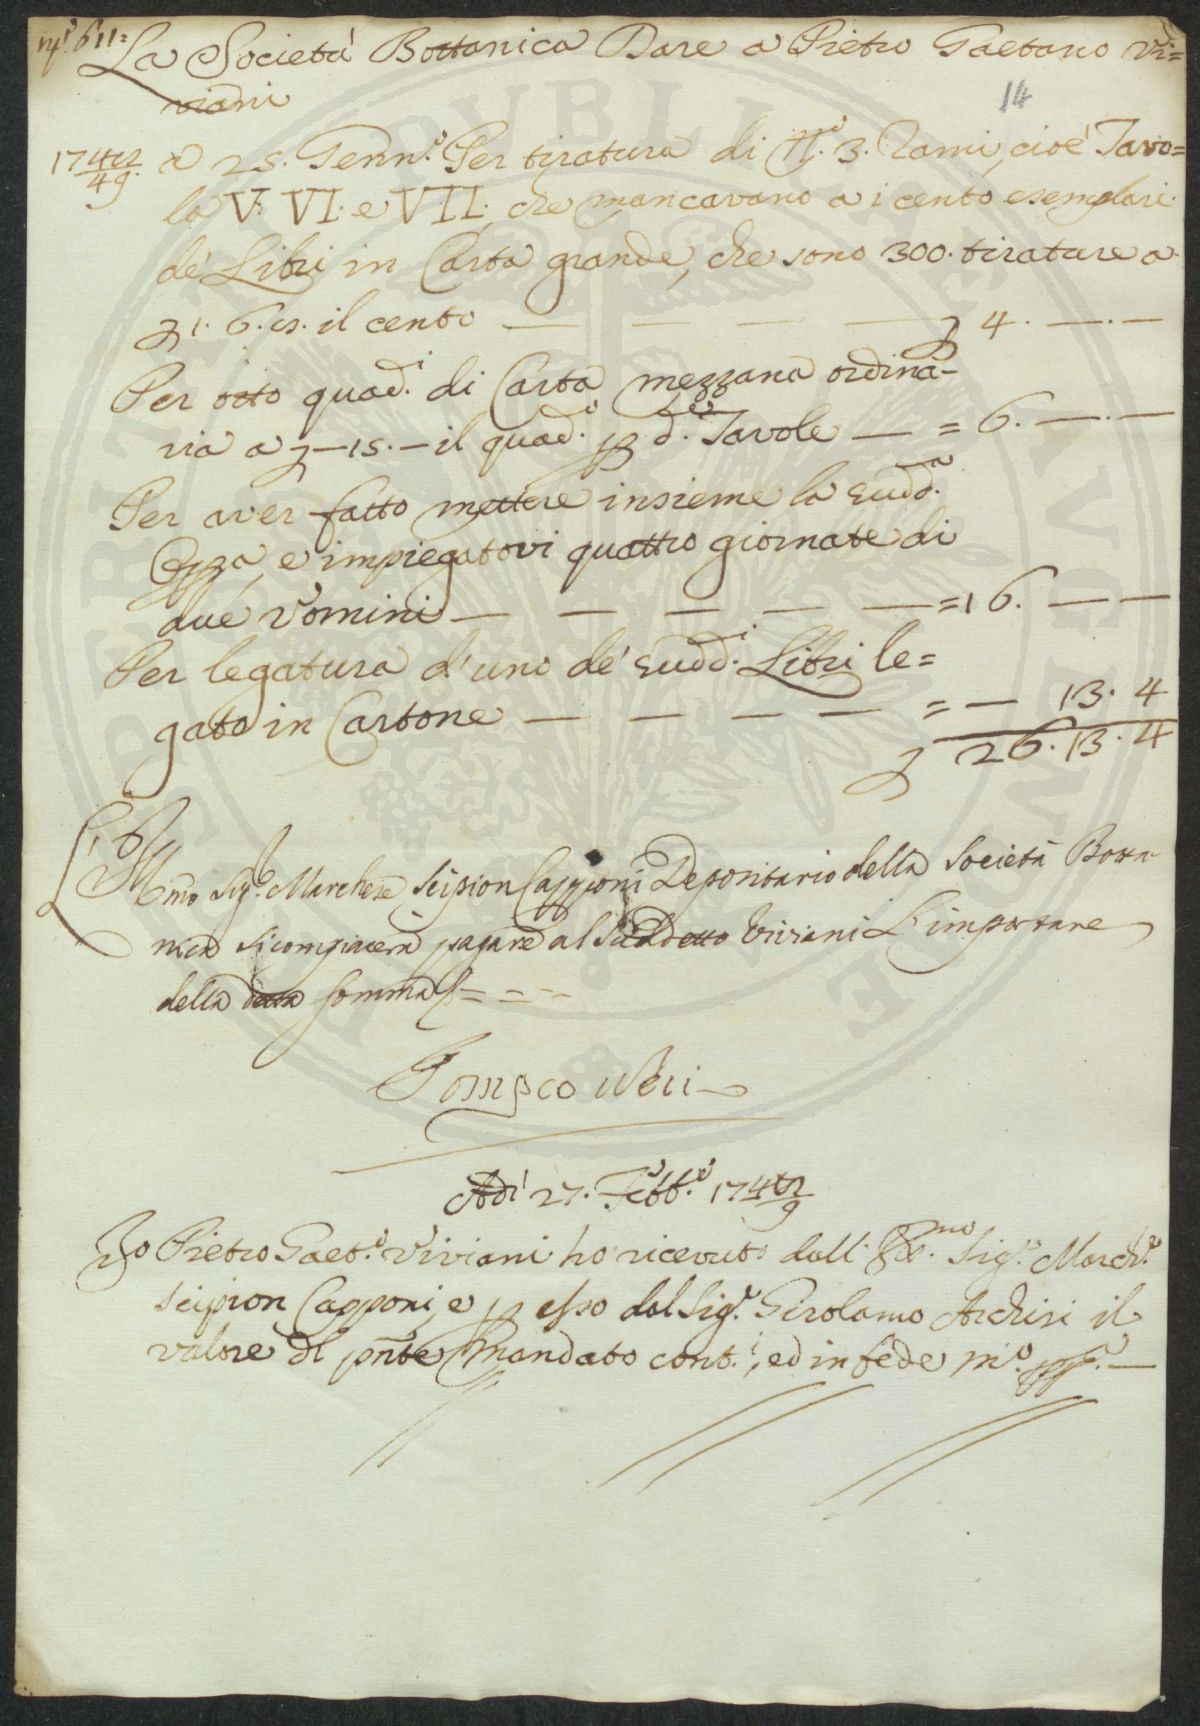 N.º 611=
La Società Bottanica Dare a Pietro Gaetano Vi=
viani
14
1748/49. a 25. Genn.º Per tiratura di N.º 3. Rami, cioè Tavo=
la V. VI. e VII. che mancavano a i cento esemplari
de' Libri in Carta grande, che sono 300. tirature a
£ 1. 6. 8. il cento — — — — £ 4. —. —
Per otto quad.i di Carta mezzana ordina-
ria a £ —15.— il quad.º p d.e Tavole — = 6. —. —
Per aver fatto mettere insieme la sudd.a
Opera, e impiegatovi quattro giornate di
due Uomini — — — — — = 16. — —
Per legatura d'uno de' sudd.i Libri le=
gato in Cartone — — — — = — 13. 4
£ 26. 13. 4
Ill.mo Sig.re Marchese Scipion Capponi Depositario della Società Botta-
nica si compiacerà pagare al Suddetto Viviani L'importare
della detta somma = = =
Pompeo Neri
Adì 27. Febb.º 1748/9
Io Pietro Gaet.º Viviani ho ricevuto dall' Ill.mo Sig.e March.e
Scipion Capponi, e p esso dal Sig.e Girolamo Archisi il
valore del pñte Mandato cont.i, ed in fede m.º pp.a —